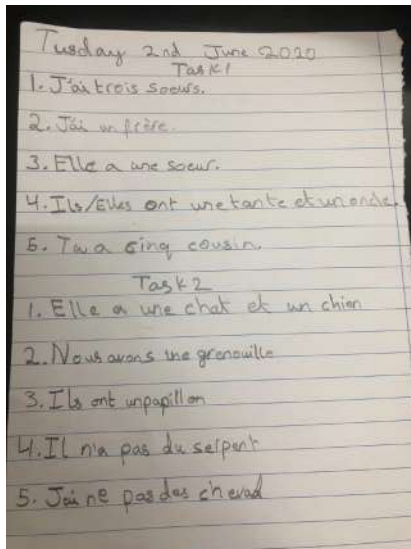 Tusday 2nd June 2020
Task 1
1. J'ai trois soeurs.
2. J'ai un frère.
3. Elle a une soeur.
4. Ils/Elles ont une tante et un oncle.
5. Tu a cinq cousin.
Task 2
1. Elle a une chat et un chien
2. Nous avons une grenouille
3. Ils ont un papillon
4. Il n'a pas du serpent
5. J'ai ne pas des